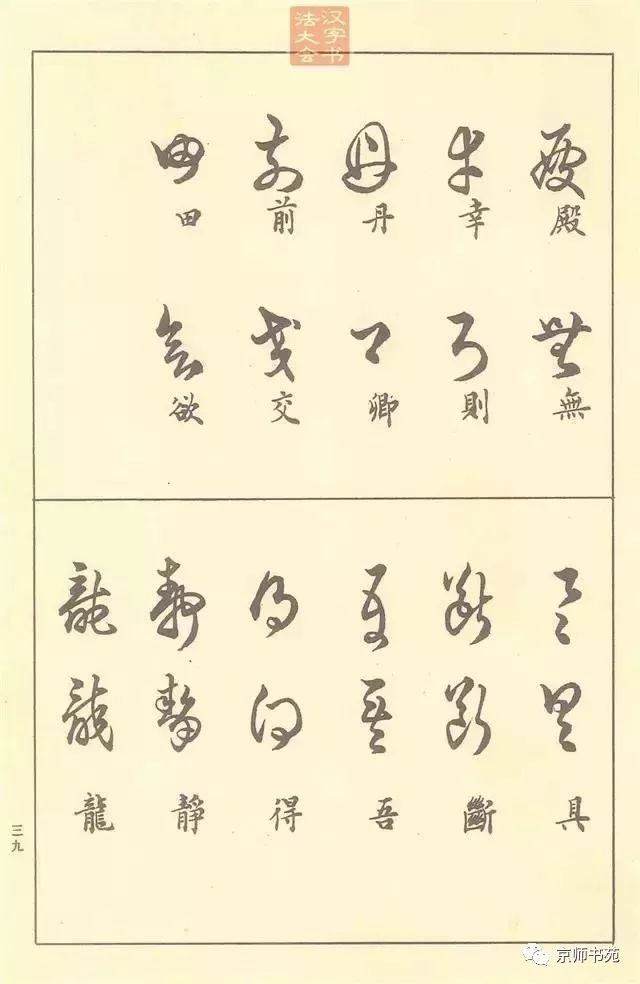 汉字书
法大会
殿 無
幸 則
丹 卿
前 交
田 欲
具
斷
吾
得
靜
龍
三九
京师书苑